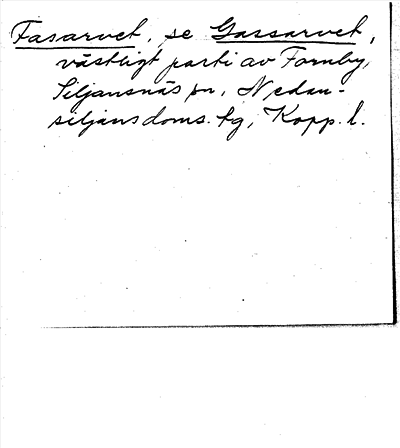 Fasarvet, se Gassarvet,
västligt parti av Fornby,
Siljansnäs sn, Nedan-
siljans doms. tg, Kopp. l.